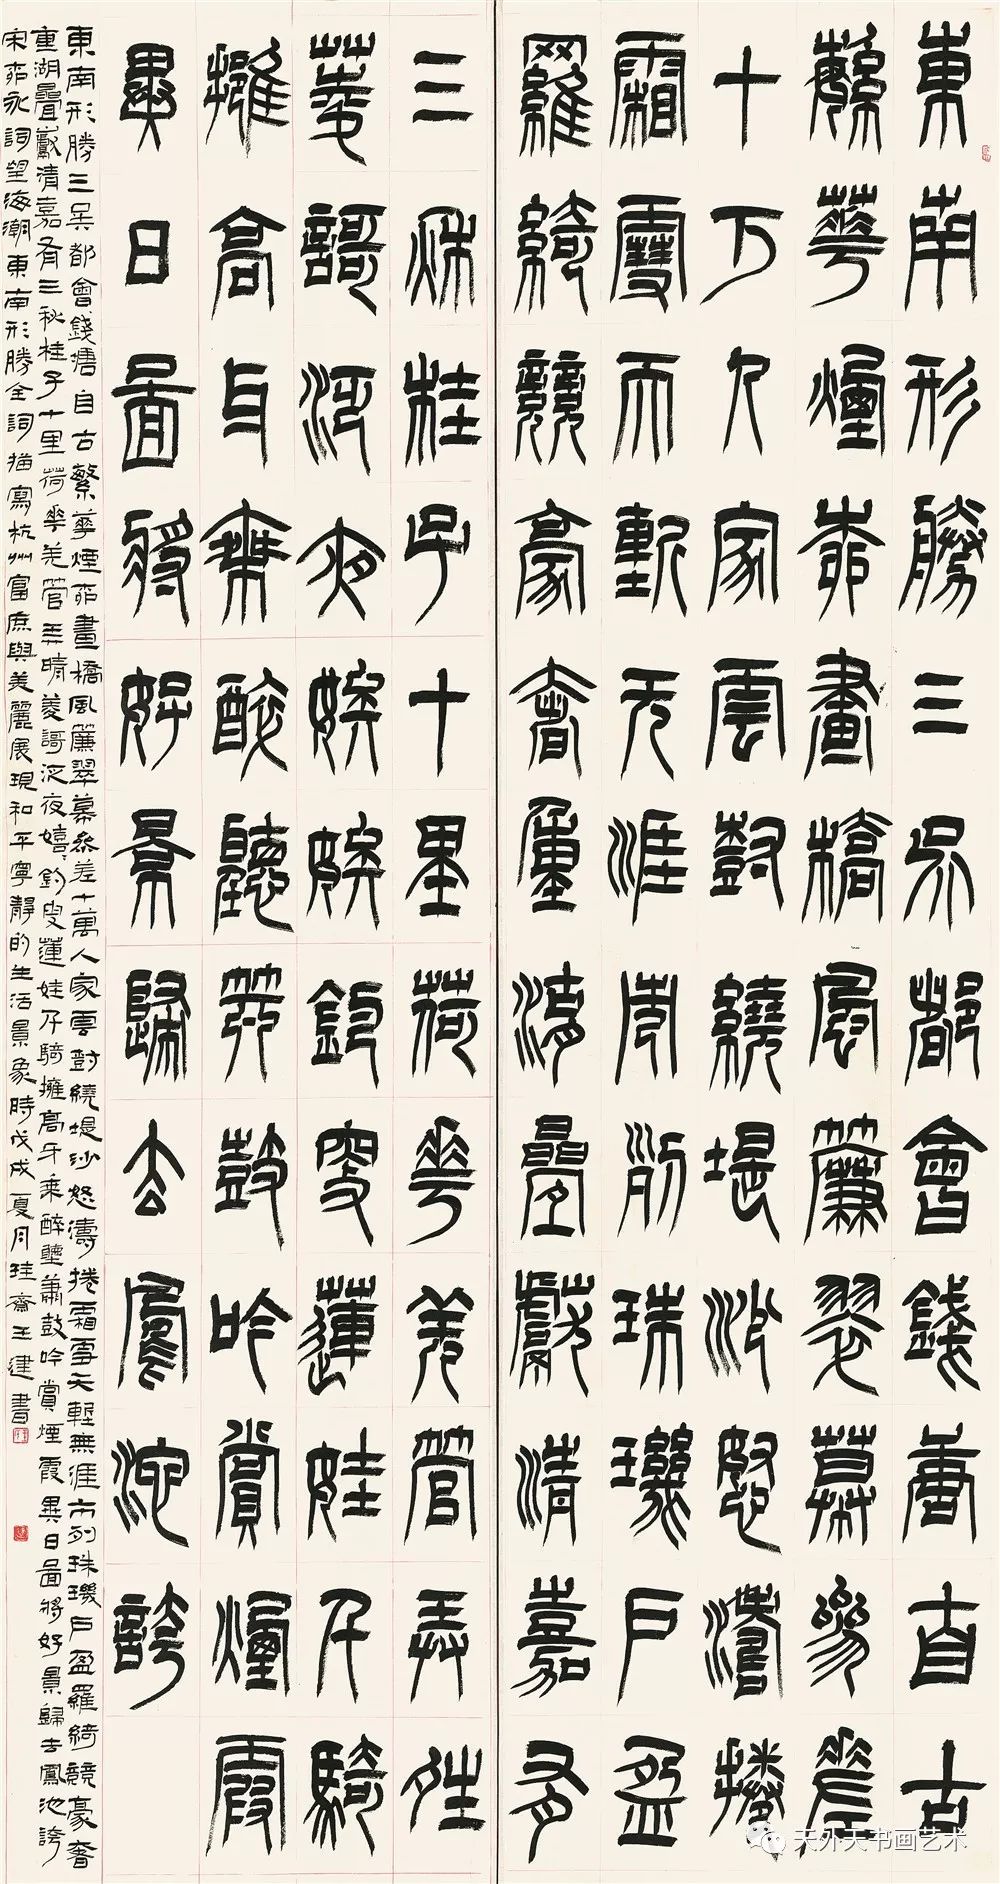 東南形勝三吳都會錢唐自古
繁華煙柳畫橋風簾翠幕參差
十万人家雲樹繞堤沙怒濤捲
霜雪天塹无涯市列珠璣戶盈
羅綺競豪奢重湖疊巘清嘉有
三秋桂子十里荷華羌管弄晴
菱謌泛夜嬉嬉釣叟蓮娃千騎
擁高牙乘醉聽簫鼓吟賞煙霞
異日圖將好景歸去鳳池誇
東南形勝三吳都會錢塘自古繁華煙柳畫橋風簾翠幕參差十萬人家雲樹繞堤沙怒濤捲霜雪天塹無涯市列珠璣戶盈羅綺競豪奢
重湖疊巘清嘉有三秋桂子十里荷華羌管弄晴菱謌泛夜嬉嬉釣叟蓮娃千騎擁高牙乘醉聽簫鼓吟賞煙霞異日圖將好景歸去鳳池誇
宋柳永詞望海潮東南形勝全詞描寫杭州富庶與美麗展現和平寧靜的生活景象時戊戌夏月珪齋王建書
天外天书画艺术